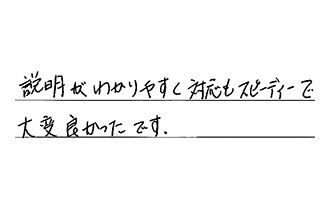 説明がわかりやすく対応もスピーディーで
大変良かったです.